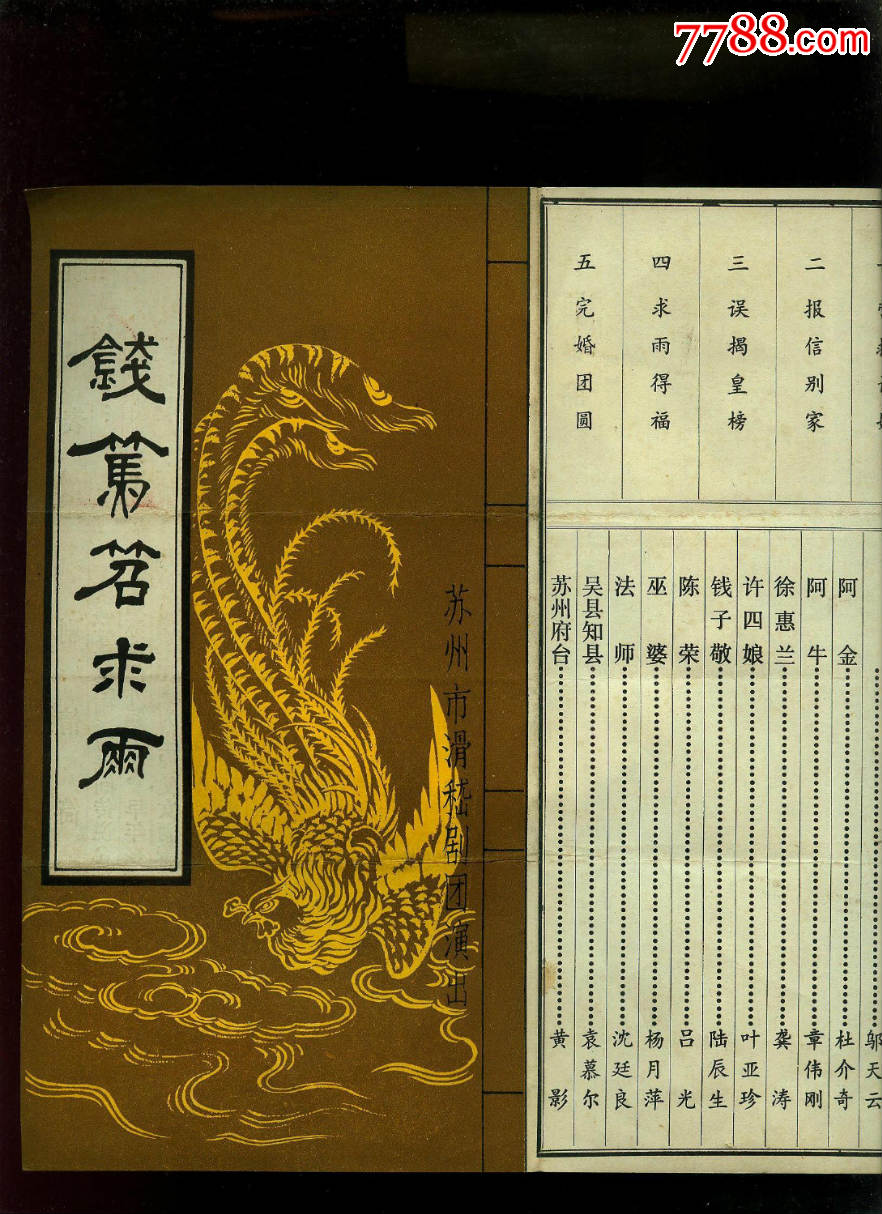 7788.com
錢篤笤求雨
苏州市滑稽剧团演出
二报信别家
三误揭皇榜
四求雨得福
五完婚团圆
邬天云
阿金………杜介奇
阿牛………章伟刚
徐惠兰………龚涛
许四娘………叶亚珍
钱子敬………陆辰生
陈荣………吕光
巫婆………杨月萍
法师………沈廷良
吴县知县………袁慕尔
苏州府台………黄影